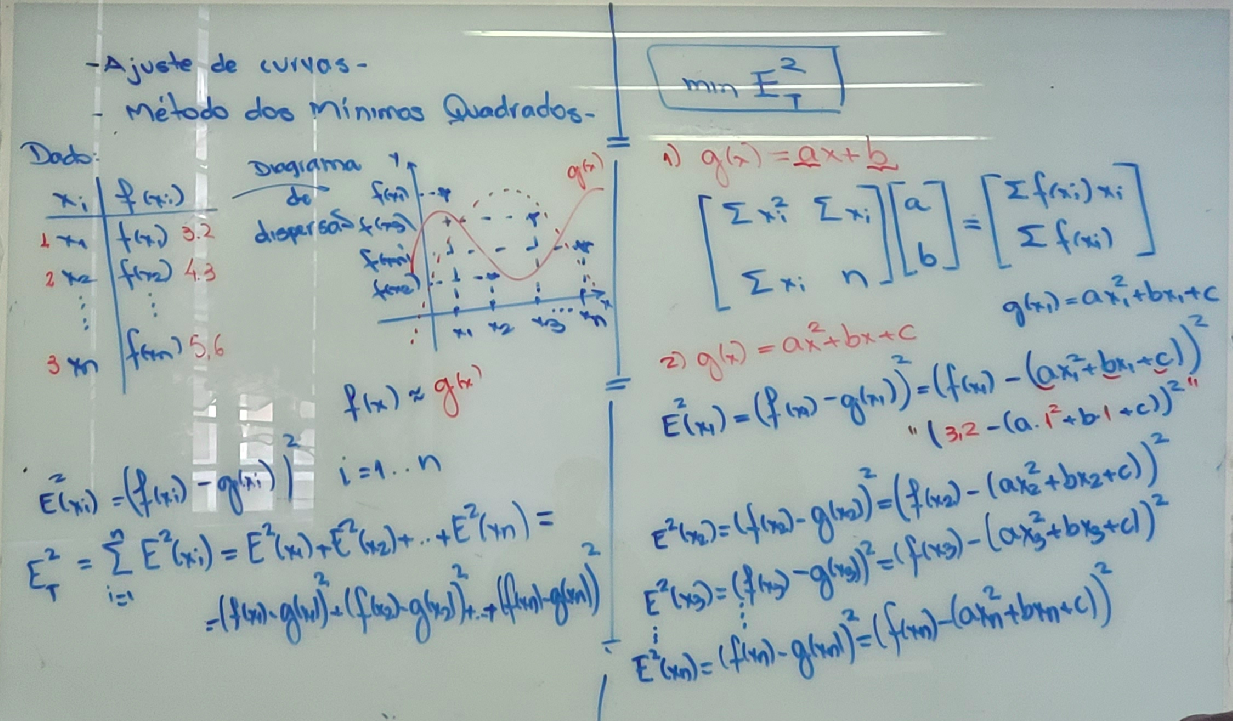 - Ajuste de curvas -
- Método dos Mínimos Quadrados -
Dado:
xi | f(xi)
1 x1 | f(x1) 3.2
2 x2 | f(x2) 4.3
⋮ ⋮ ⋮
3 xn | f(xn) 5,6
Diagrama
de
dispersão
y
f(x1)
f(x3)
f(xn)
f(x2)
g(x)
x1 x2 x3 ... xn x
f(x) ≈ g(x)
E²(xi) = (f(xi) - g(xi))² i = 1 .. n
E_T² = Σ_{i=1}^{n} E²(xi) = E²(x1) + E²(x2) + .. + E²(xn) =
= (f(x1) - g(x1))² + (f(x2) - g(x2))² + .. + (f(xn) - g(xn))²
min E_T²
1) g(x) = ax + b
[Σxi² Σxi] [a] = [Σf(xi)xi]
[Σxi n] [b] [Σf(xi)]
g(x1) = ax1² + bx1 + c
2) g(x) = ax² + bx + c
E²(x1) = (f(x1) - g(x1))² = (f(x1) - (ax1² + bx1 + c))²
" (3,2 - (a.1² + b.1 + c))² "
E²(x2) = (f(x2) - g(x2))² = (f(x2) - (ax2² + bx2 + c))²
E²(x3) = (f(x3) - g(x3))² = (f(x3) - (ax3² + bx3 + c))²
⋮ ⋮
E²(xn) = (f(xn) - g(xn))² = (f(xn) - (axn² + bxn + c))²